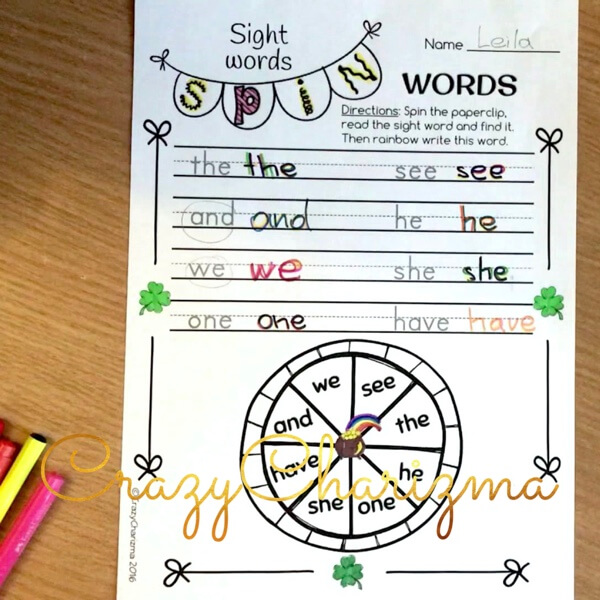 Sight
words
SPIN
Name Leila
WORDS
Directions: Spin the paperclip,
read the sight word and find it.
Then rainbow write this word.
the the see see
and and he he
we we she she
one one have have
we see
and the
have he
she one
CrazyCharizma
©CrazyCharizma 2016